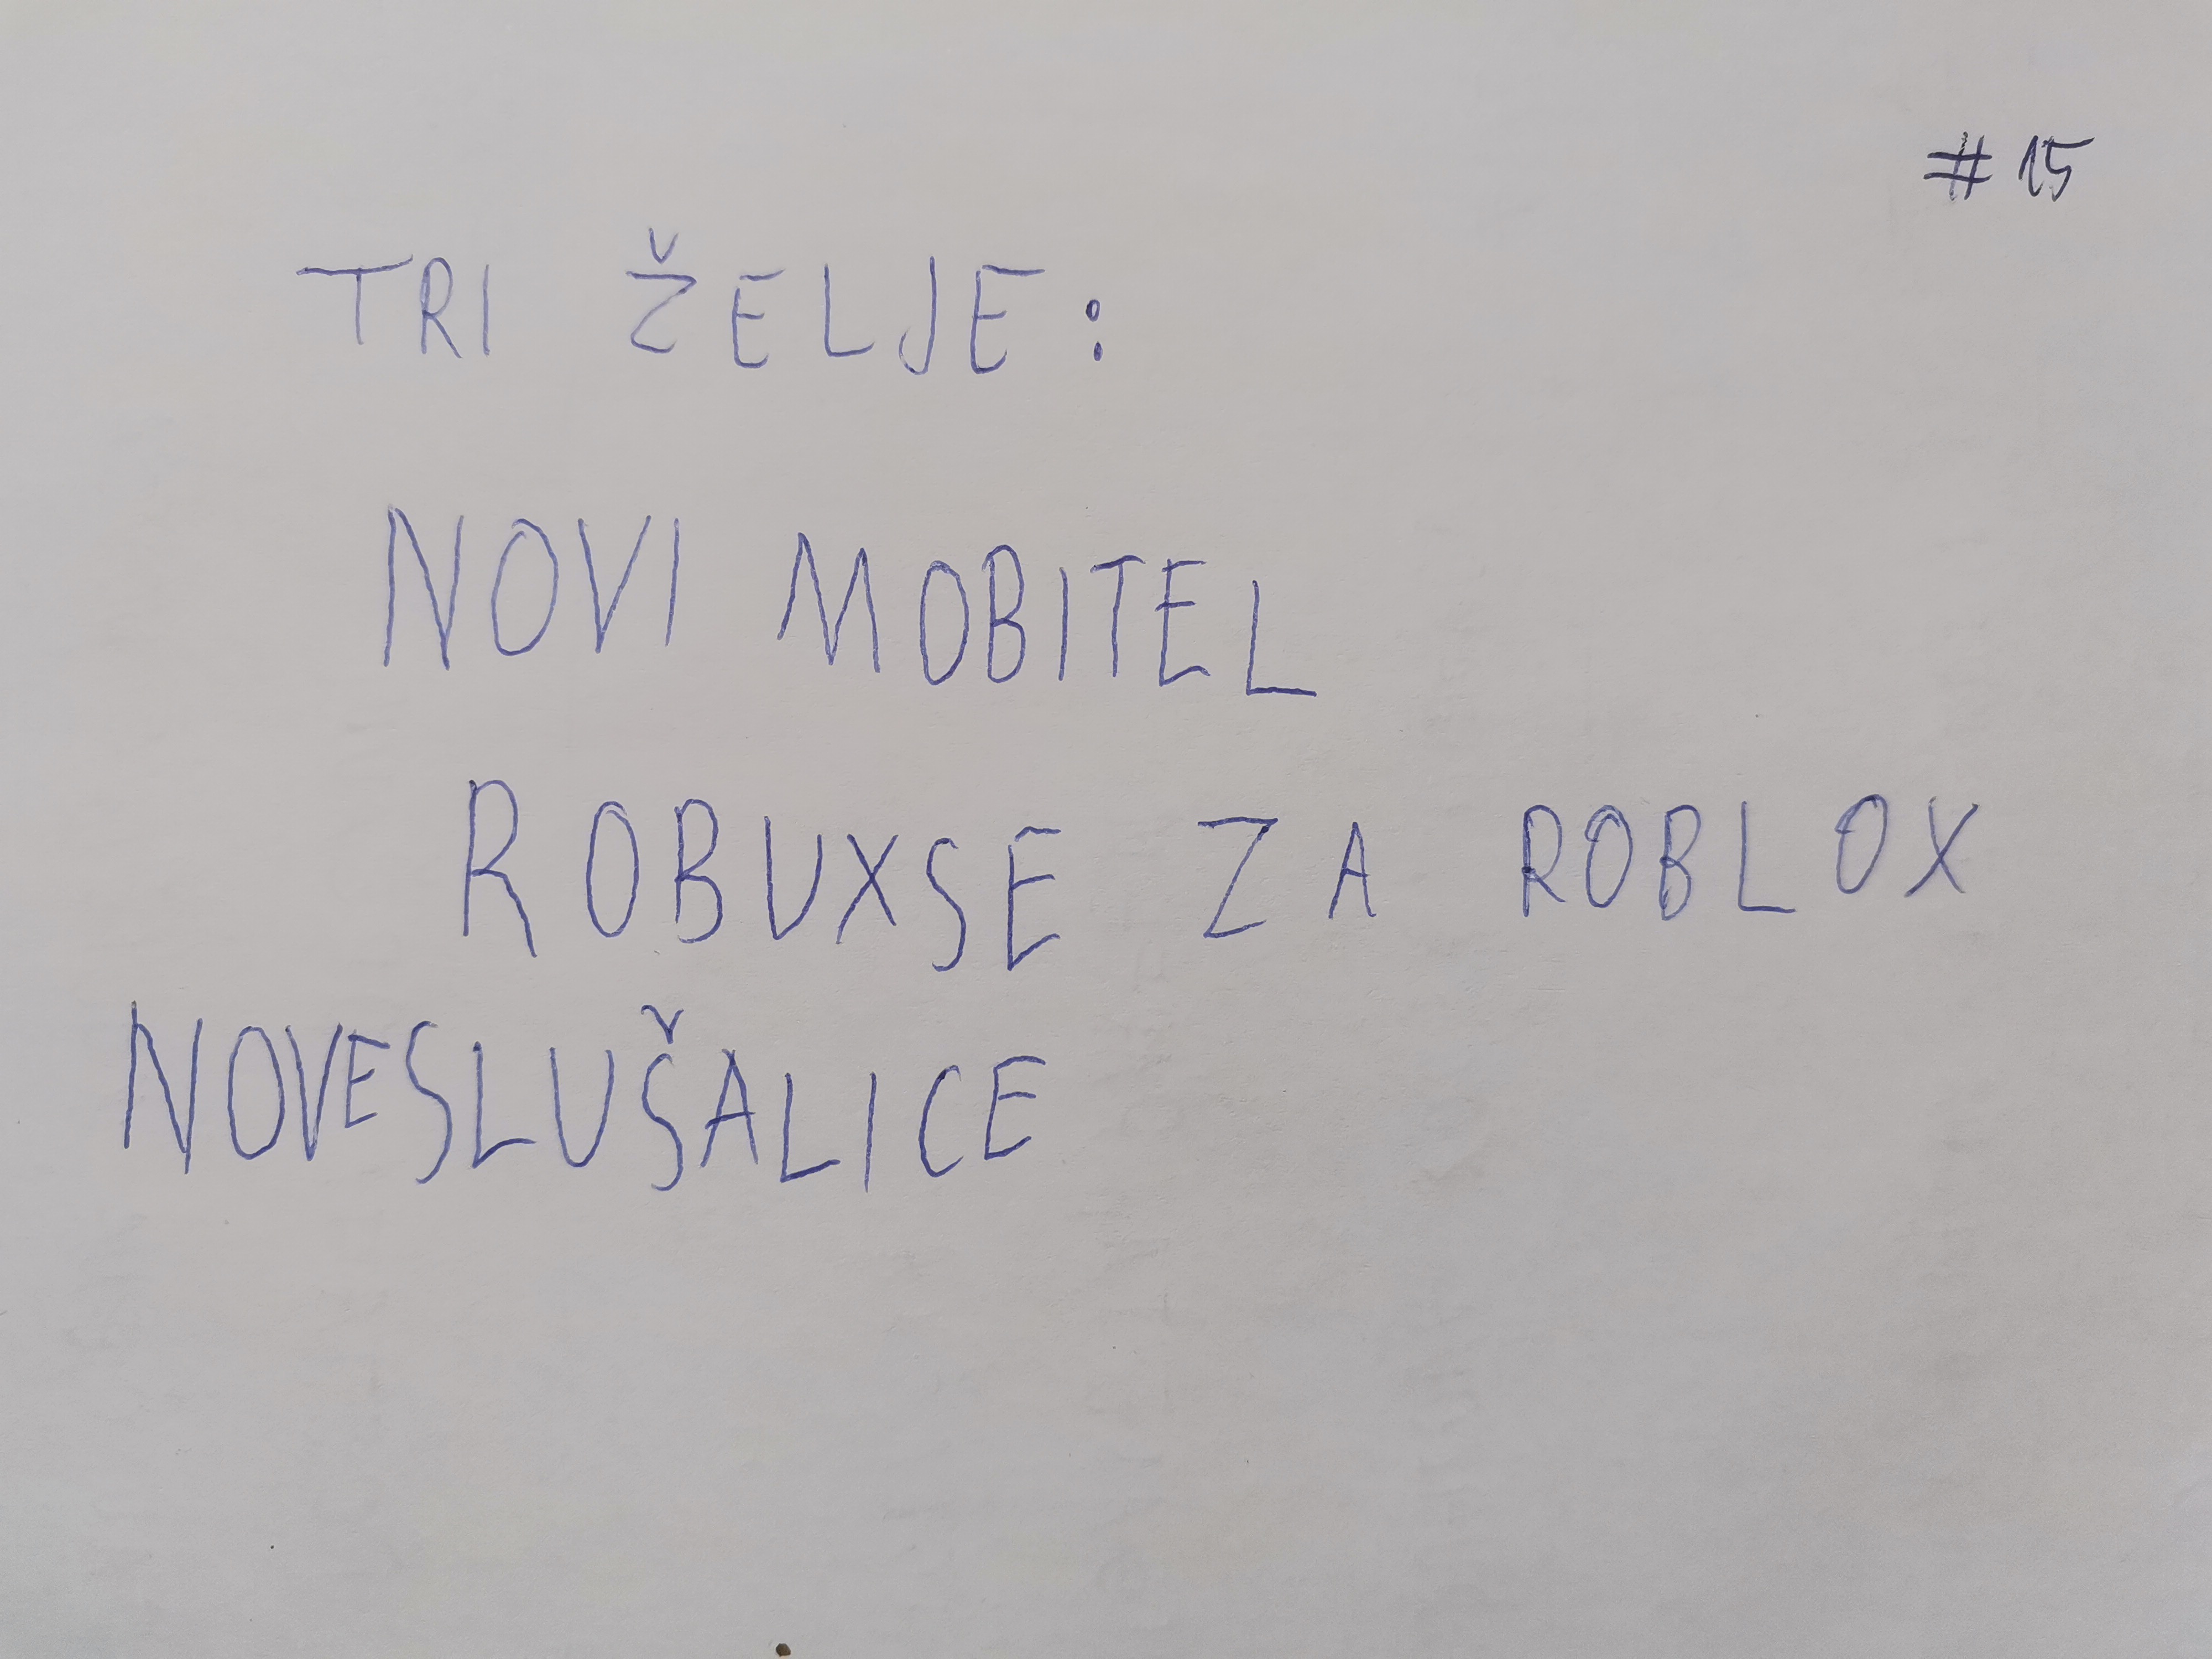 #15
TRI ŽELJE:
NOVI MOBITEL
ROBUXSE ZA ROBLOX
NOVESLUŠALICE